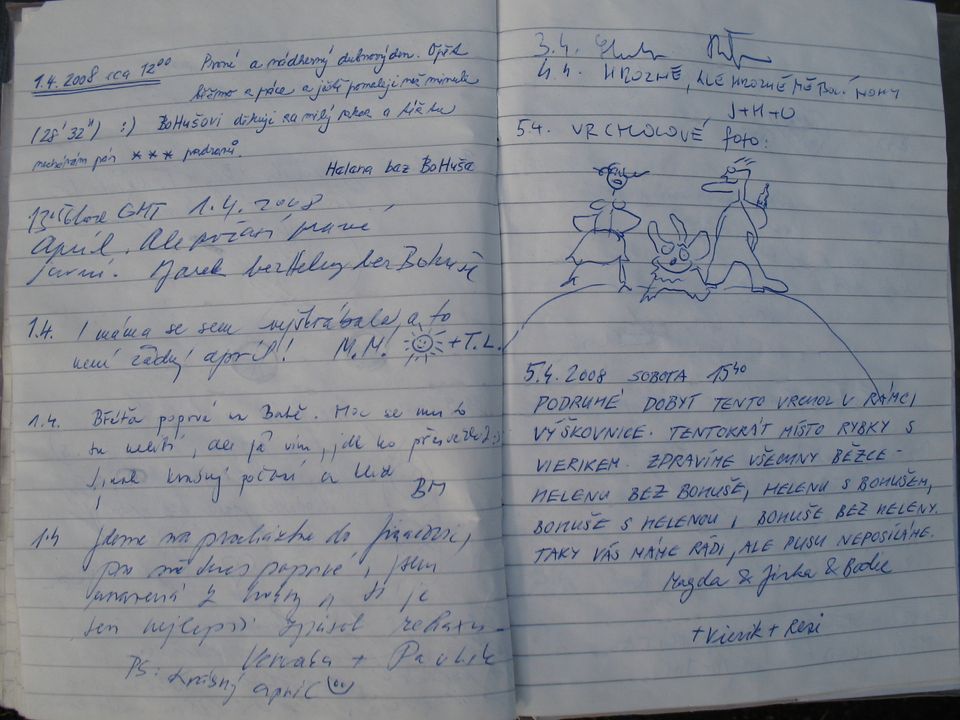 1.4. 2008 cca 12⁰⁰ První a nádherný dubnový den. Opět
běžmo a práce a ještě pomaleji než minule
(28' 32") :) BoHušovi děkuji za milý vzkaz a
nechávám pár *** pozdravů.
Helena bez BoHuša
GHT 1.4.2008
Apríl. Ale počasí pravé
jarní. Marek bez Heleny bez Bohuše
1.4. I máma se sem vyškrábala, a to
není žádný apríl! M.M. + T.L.
1.4. poprvé na Babě. Moc se mu to
tu nelíbí, ale já vím, jak ho
Jinak krásný počasí a klid
BM
1.4 Jdeme na procházku do
pro mě dnes poprvé, jsem
unavená z a tohle je
ten nejlepší způsob relaxu
Veronika + Pavlík
PS: krásný apríl
3.4.
4.4. HROZNĚ, ALE HROZNĚ MĚ BOLÍ NOHY
J+H+O
5.4. VRCHOLOVÉ foto:
5.4.2008 SOBOTA 15⁴⁰
PODRUHÉ DOBYT TENTO VRCHOL V RÁMCI
VÝŠKOVNICE. TENTOKRÁT MÍSTO RYBKY S
VIERIKEM. ZDRAVÍME VŠECHNY BĚŽCE -
HELENU BEZ BOHUŠE, HELENU S BOHUŠEM,
BOHUŠE S HELENOU, BOHUŠE BEZ HELENY.
TAKY VÁS MÁME RÁDI, ALE PUSU NEPOSÍLÁME.
Magda & Jirka & Bodie
+ Vierik + Resi